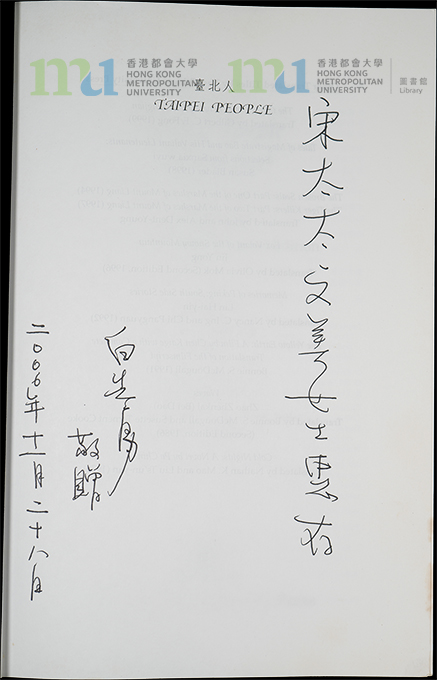 mu
香港都會大學
HONG KONG
METROPOLITAN
UNIVERSITY
mu
香港都會大學
HONG KONG
METROPOLITAN
UNIVERSITY
圖書館
Library
臺北人
TAIPEI PEOPLE
宋太太文美女士惠存
白先勇
敬贈
二〇〇六年十一月二十八日